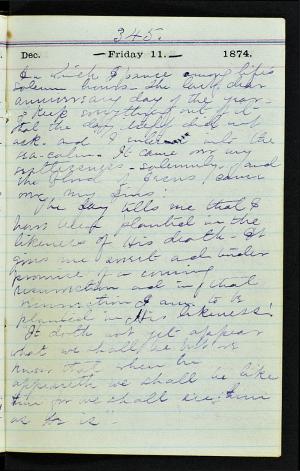 345.
Dec. — Friday 11. — 1874.
In which I pause among life's
solemn hours - the last, dear
anniversary day of the year -
I keep everything out of it
that the day itself did not
ask and I entered into the
sea-calm. It came
solemnly, and
the blood covers
me, my Sins!
The day tells me that I
have been planted in the
likeness of His death - It
gives me under
promise of a coming
resurrection and in that
resurrection I am to be
planted in His likeness!
"It doth not yet appear
what we shall be but we
know that when he
appeareth we shall be like
him for we shall see him
as he is"